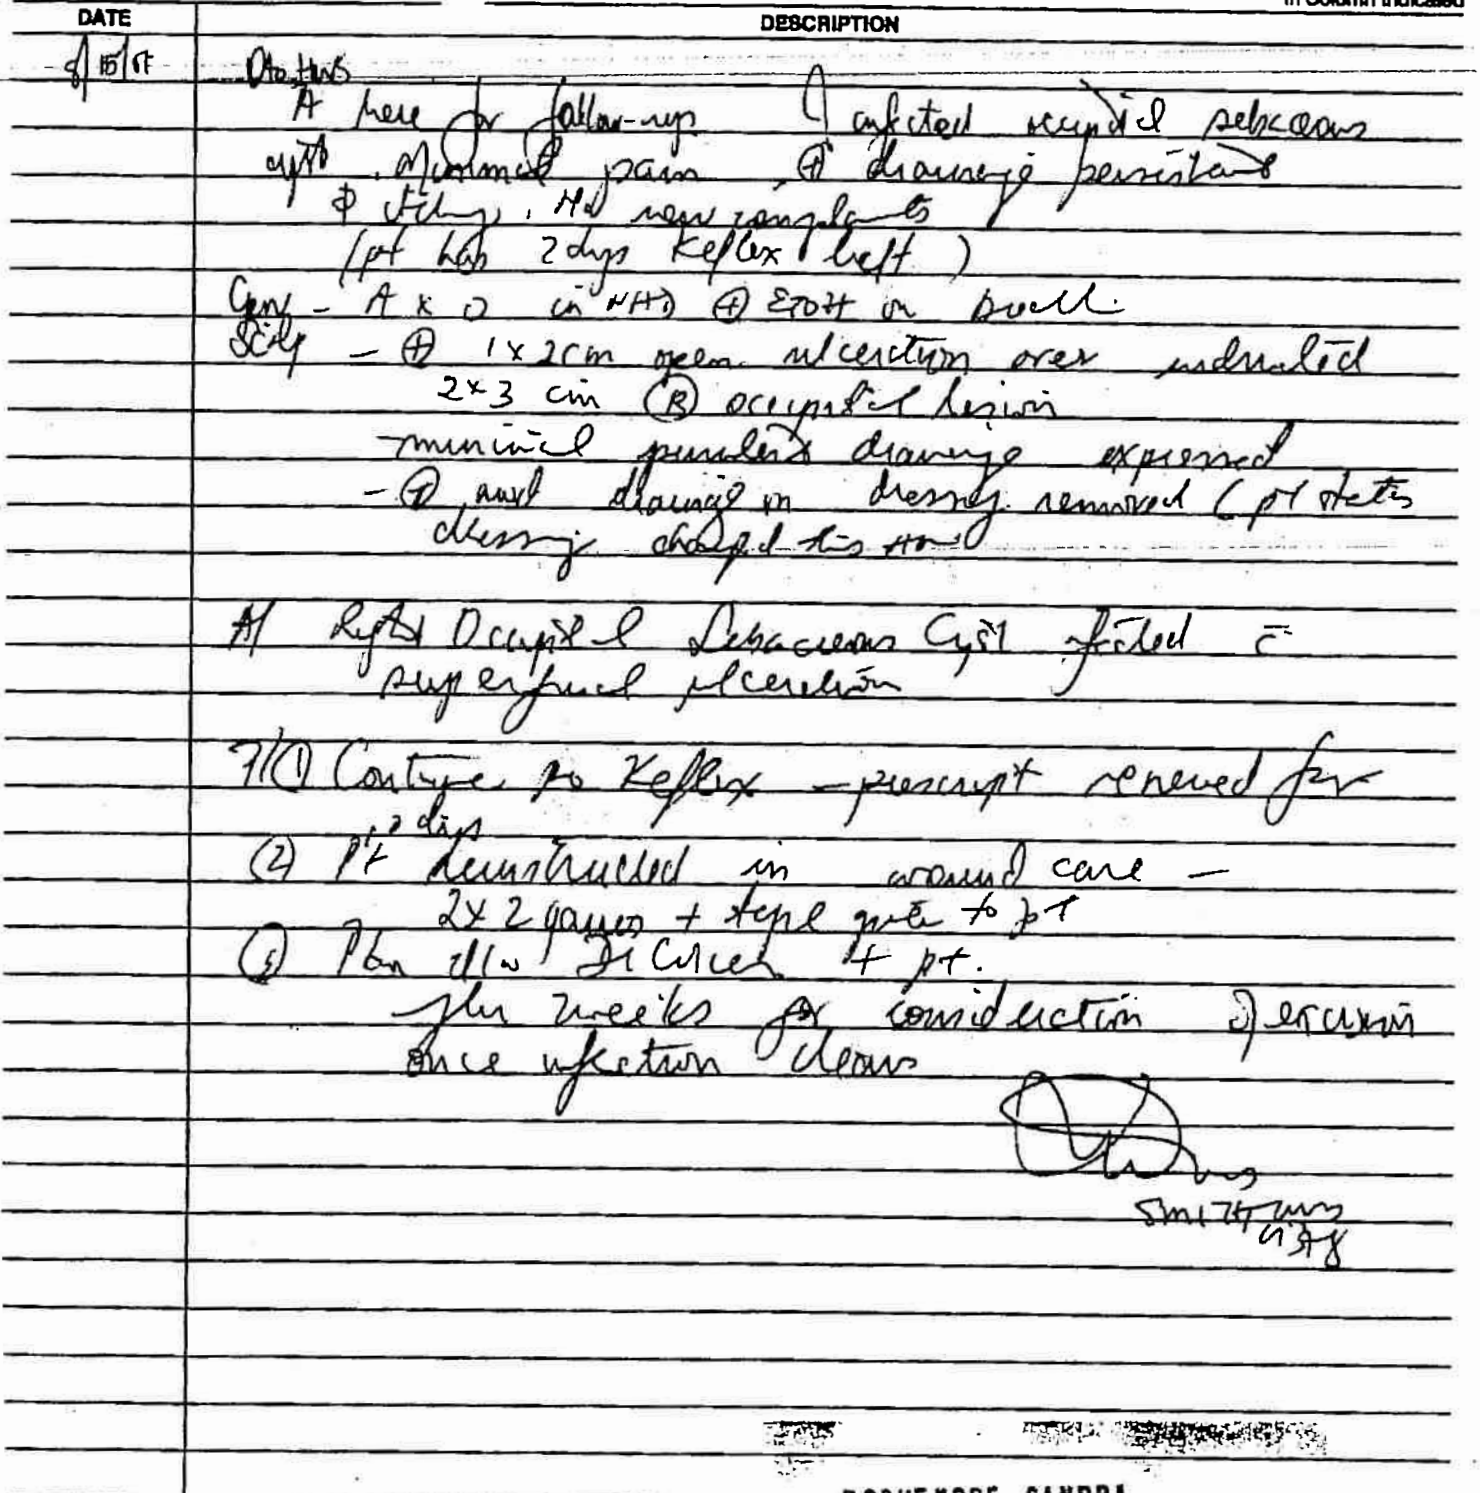 in Column Indicated
DATE DESCRIPTION
8/15/
Pt here for follow-up infected occipital sebaceous
cyst. Minimal pain, ⊕ drainage persistent
itching. No new complaints
(pt has 2 days Keflex left)
Gen - A x O in NAD ⊕ ETOH on
Scalp - ⊕ 1 x 2 cm open ulceration over indurated
2 x 3 cm Ⓡ occipital lesion
- minimal purulent drainage expressed
- ⊕ drainage on dressing removed (pt states
dressing changed this
A/ Right Occipital Sebaceous Cyst infected c̄
superficial ulceration
P/ ① Continue po Keflex - prescript renewed for
days
② Pt instructed in wound care -
2x2 gauzes + tape given to pt
③ Plan d/w Dr + pt.
weeks for consideration of excision
once infection clears
SMITH